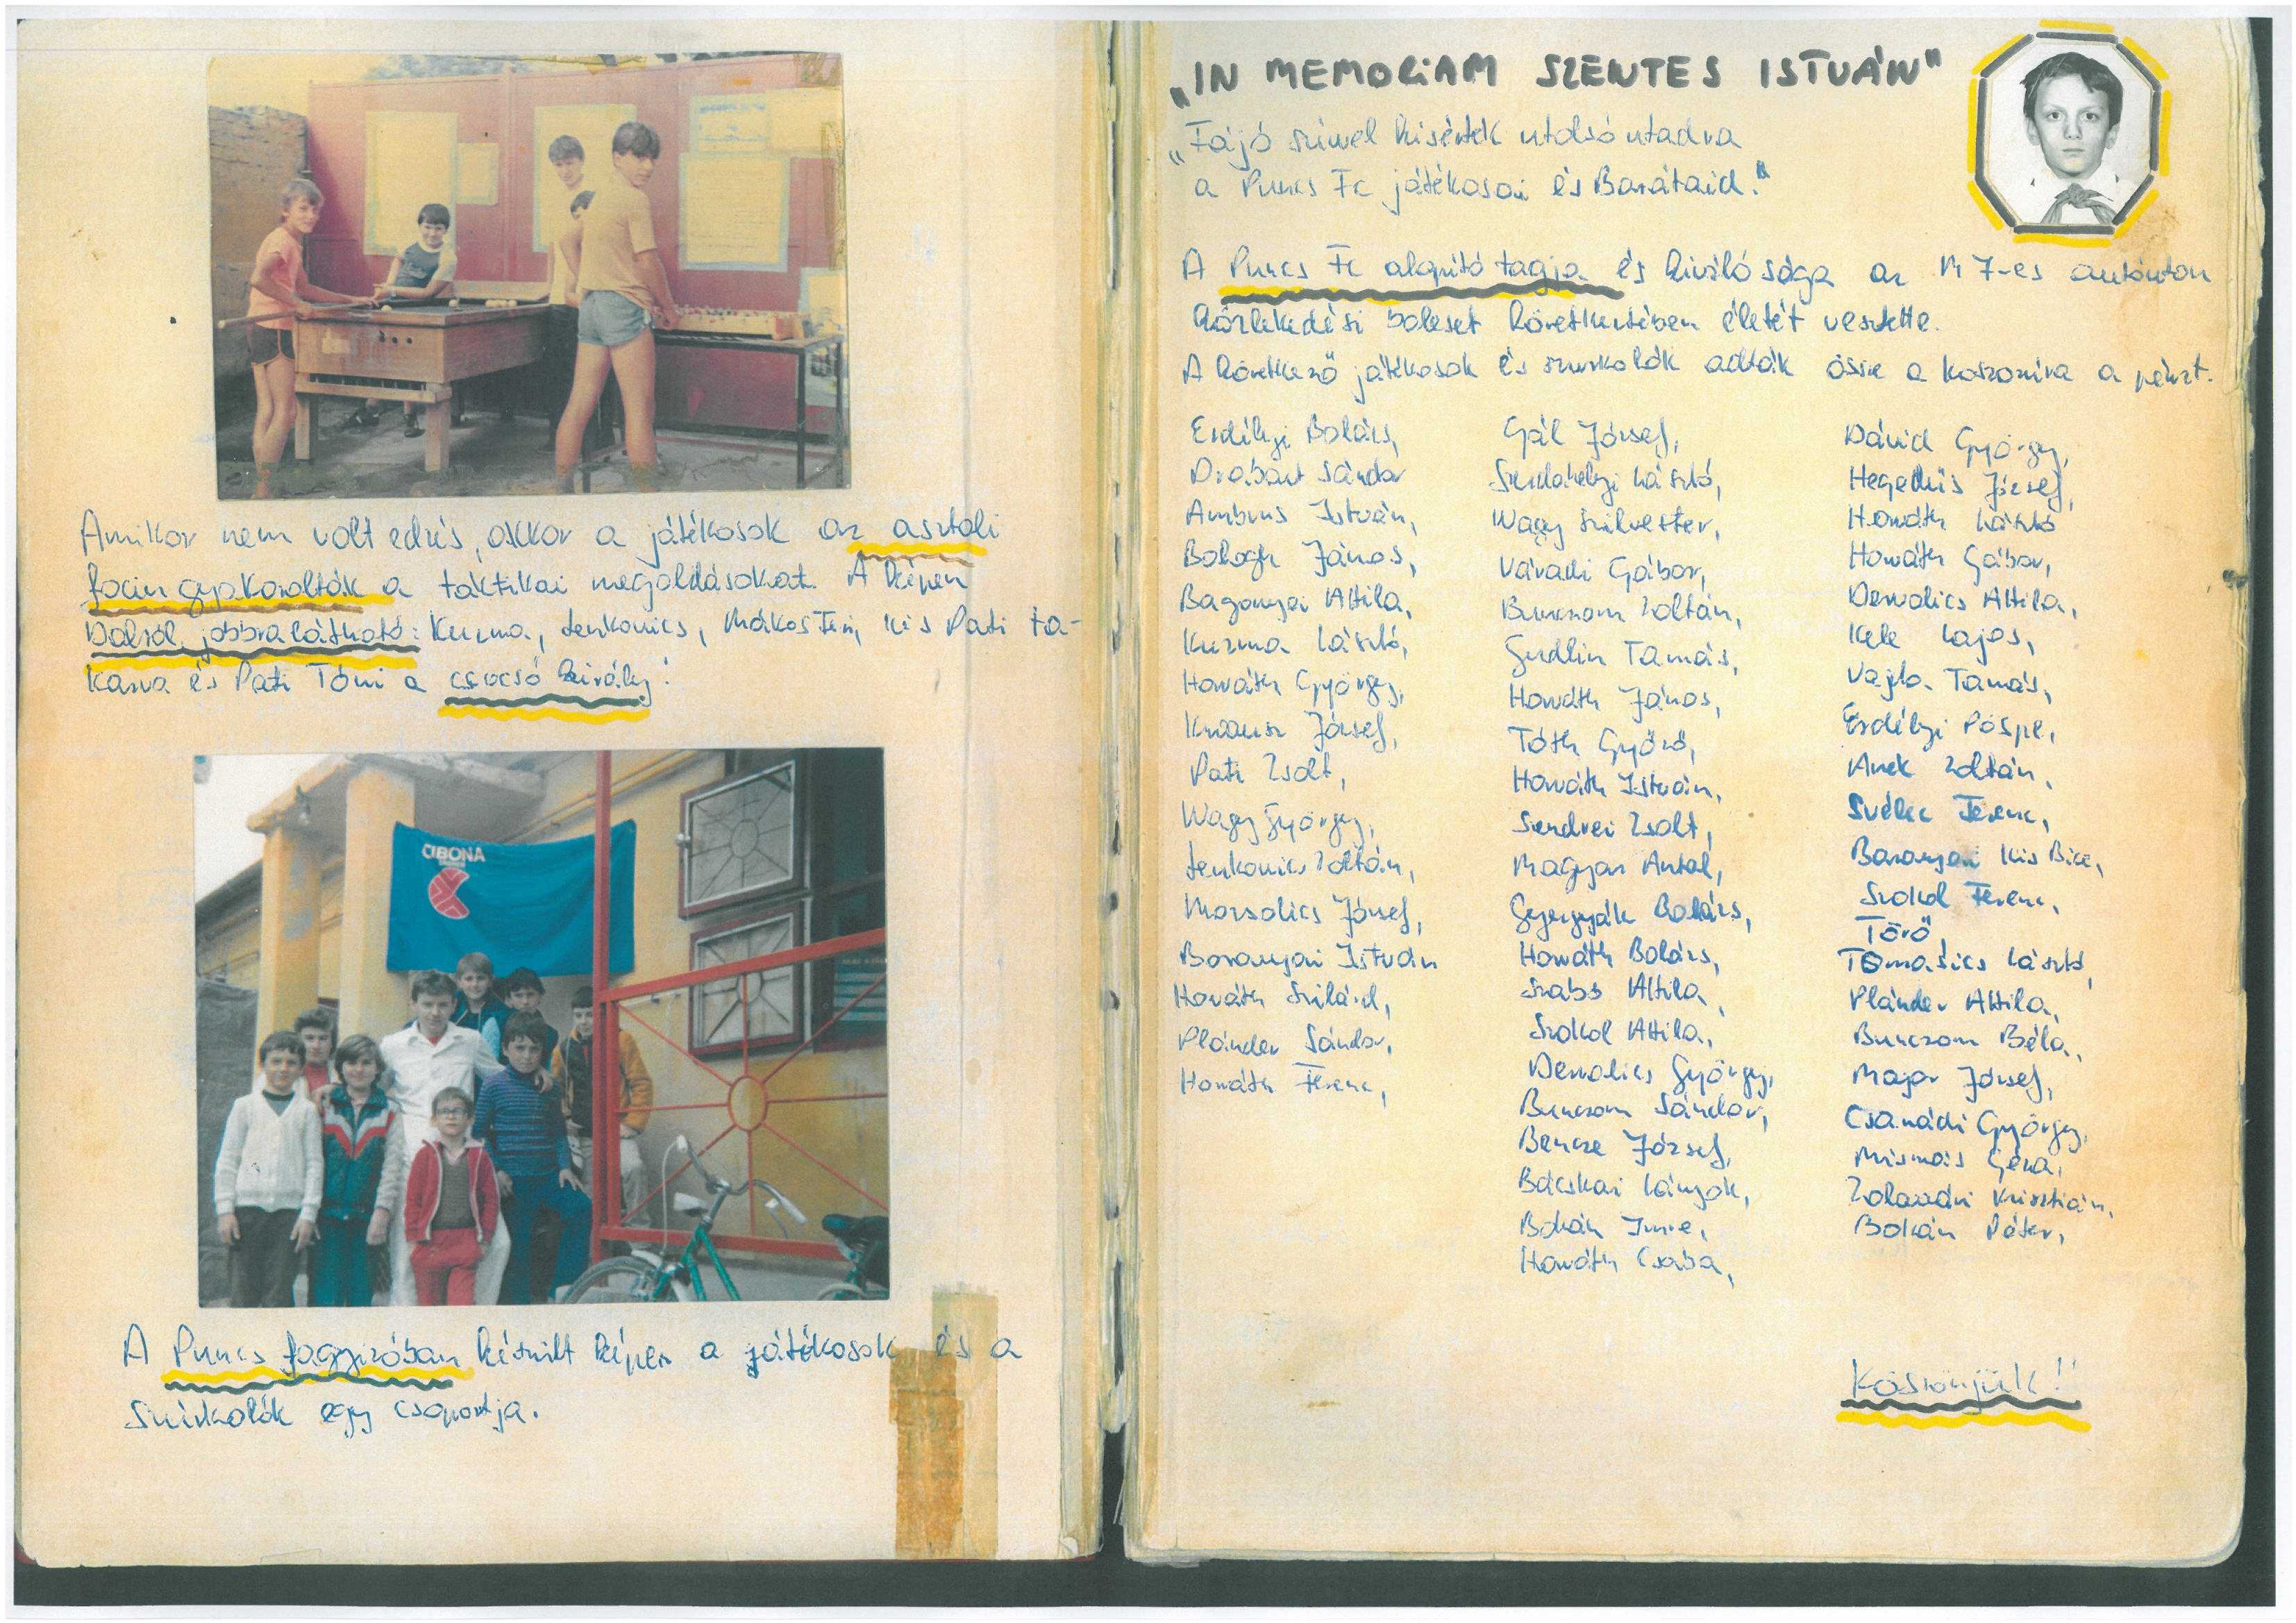 Amikor nem volt edzés, akkor a játékosok az asztali
focin gyakorolták a taktikai megoldásokat. A képen
Balról jobbra látható: Kuzma, Lenkovics, Mákos Feri, Kis Pati ta-
karva és Pati Tóni a csocsó király!
CIBONA
A Puncs fagyizóban készült képen a játékosok és a
szurkolók egy csoportja.
„IN MEMORIAM SZENTES ISTVÁN"
„Fájó szívvel kisérték utolsó utadra
a Puncs Fc játékosai és Barátaid."
A Puncs Fc alapító tagja és kiválósága az M7-es autóúton
közlekedési baleset következtében életét vesztette.
A következő játékosok és szurkolók adták össze a koszorúra a pénzt.
Erdélyi Balázs,
Drabant Sándor
Ambrus István,
Balogh János,
Baganyai Attila,
Kuzma László,
Horváth György,
Krausz József,
Pati Zsolt,
Nagy György,
Lenkovics Zoltán,
Marsalics József,
Baranyai István
Horváth Szilárd,
Plánder Sándor,
Horváth Ferenc,
Gál József,
Szerdahelyi László,
Nagy Szilveszter,
Váradi Gábor,
Bunczom Zoltán,
Gerdlin Tamás,
Horváth János,
Tóth Győző,
Horváth István,
Szendrei Zsolt,
Magyar Antal,
Gyergyák Balázs,
Horváth Balázs,
Szabó Attila,
Szokol Attila,
Dervalics György,
Bunczom Sándor,
Bencze József,
Bácskai Lányok,
Bokán Imre,
Horváth Csaba,
Dávid György,
Hegedüs József,
Horváth László
Horváth Gábor,
Dervalics Attila,
Kele Lajos,
Vajda Tamás,
Erdélyi Pöspe,
Anek Zoltán,
Svélec Ferenc,
Baranyai Kis Bice,
Szokol Ferenc,
Törő
Tomasics László,
Plánder Attila,
Bunczom Béla,
Major József,
Csanádi György,
Géza,
Krisztián,
Bokán Péter,
Köszönjük!!